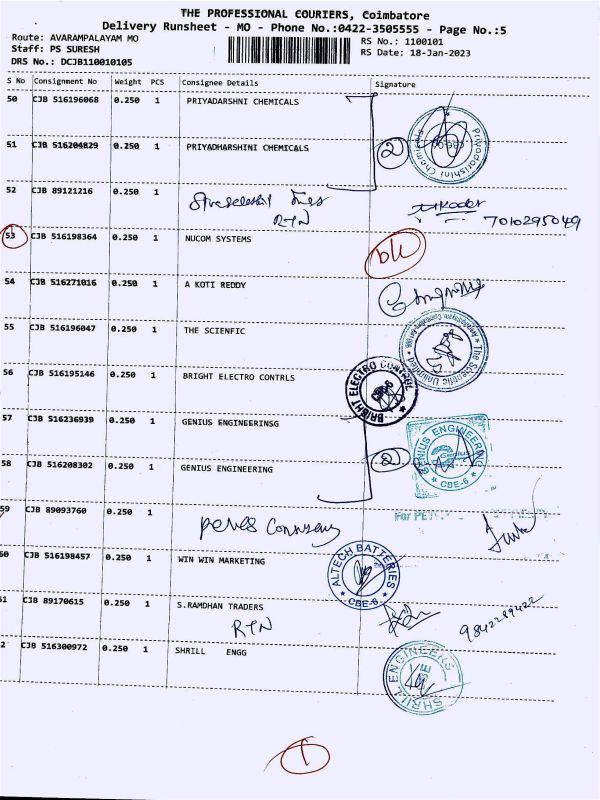 THE PROFESSIONAL COURIERS, Coimbatore
Delivery Runsheet - MO - Phone No.:0422-3505555 - Page No.:5
Route: AVARAMPALAYAM MO
Staff: PS SURESH
DRS No.: DCJB110010105
RS No.: 1100101
RS Date: 18-Jan-2023
S No Consignment No Weight PCS Consignee Details Signature
50 CJB 516196068 0.250 1 PRIYADARSHNI CHEMICALS
51 CJB 516204829 0.250 1 PRIYADHARSHINI CHEMICALS
2
Priyadarishini Chemicals
52 CJB 89121216 0.250 1
RTN
7010295049
53 CJB 516198364 0.250 1 NUCOM SYSTEMS
54 CJB 516271016 0.250 1 A KOTI REDDY
55 CJB 516196047 0.250 1 THE SCIENFIC
The Scientific Unlimited
56 CJB 516195146 0.250 1 BRIGHT ELECTRO CONTRLS
BRIGHT ELECTRO CONTROL
57 CJB 516236939 0.250 1 GENIUS ENGINEERINSG
58 CJB 516208302 0.250 1 GENIUS ENGINEERING
2
GENIUS ENGINEERING
CBE-6
59 CJB 89093760 0.250 1
For PE
60 CJB 516198457 0.250 1 WIN WIN MARKETING
ALTECH BATTERIES
CBE-6
61 CJB 89170615 0.250 1 S.RAMDHAN TRADERS
RTN
52 CJB 516300972 0.250 1 SHRILL ENGG
SHRILL ENGINEERS
1